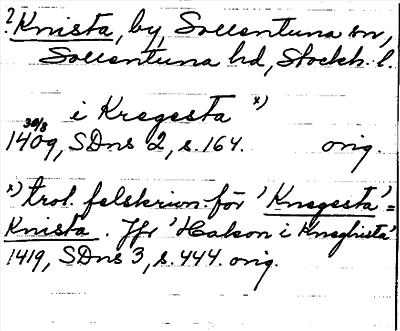 ? Knista, by, Sollentuna sn,
Sollentuna hd, Stockh. l.
i Kregesta x)
1409 30/8, SDns 2, s. 164. orig.
x) trol. felskrivn. för 'Knegesta' =
Knista. Jfr 'Hakon i Kneghista'
1419, SDns 3, s. 444. orig.